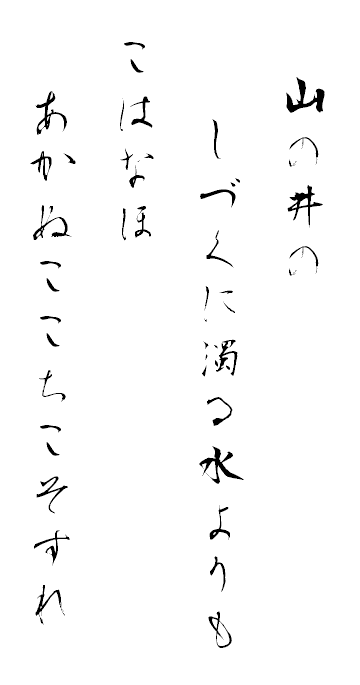 山の井の
しづくに濁る水よりも
こはなほ
あかぬここちこそすれ